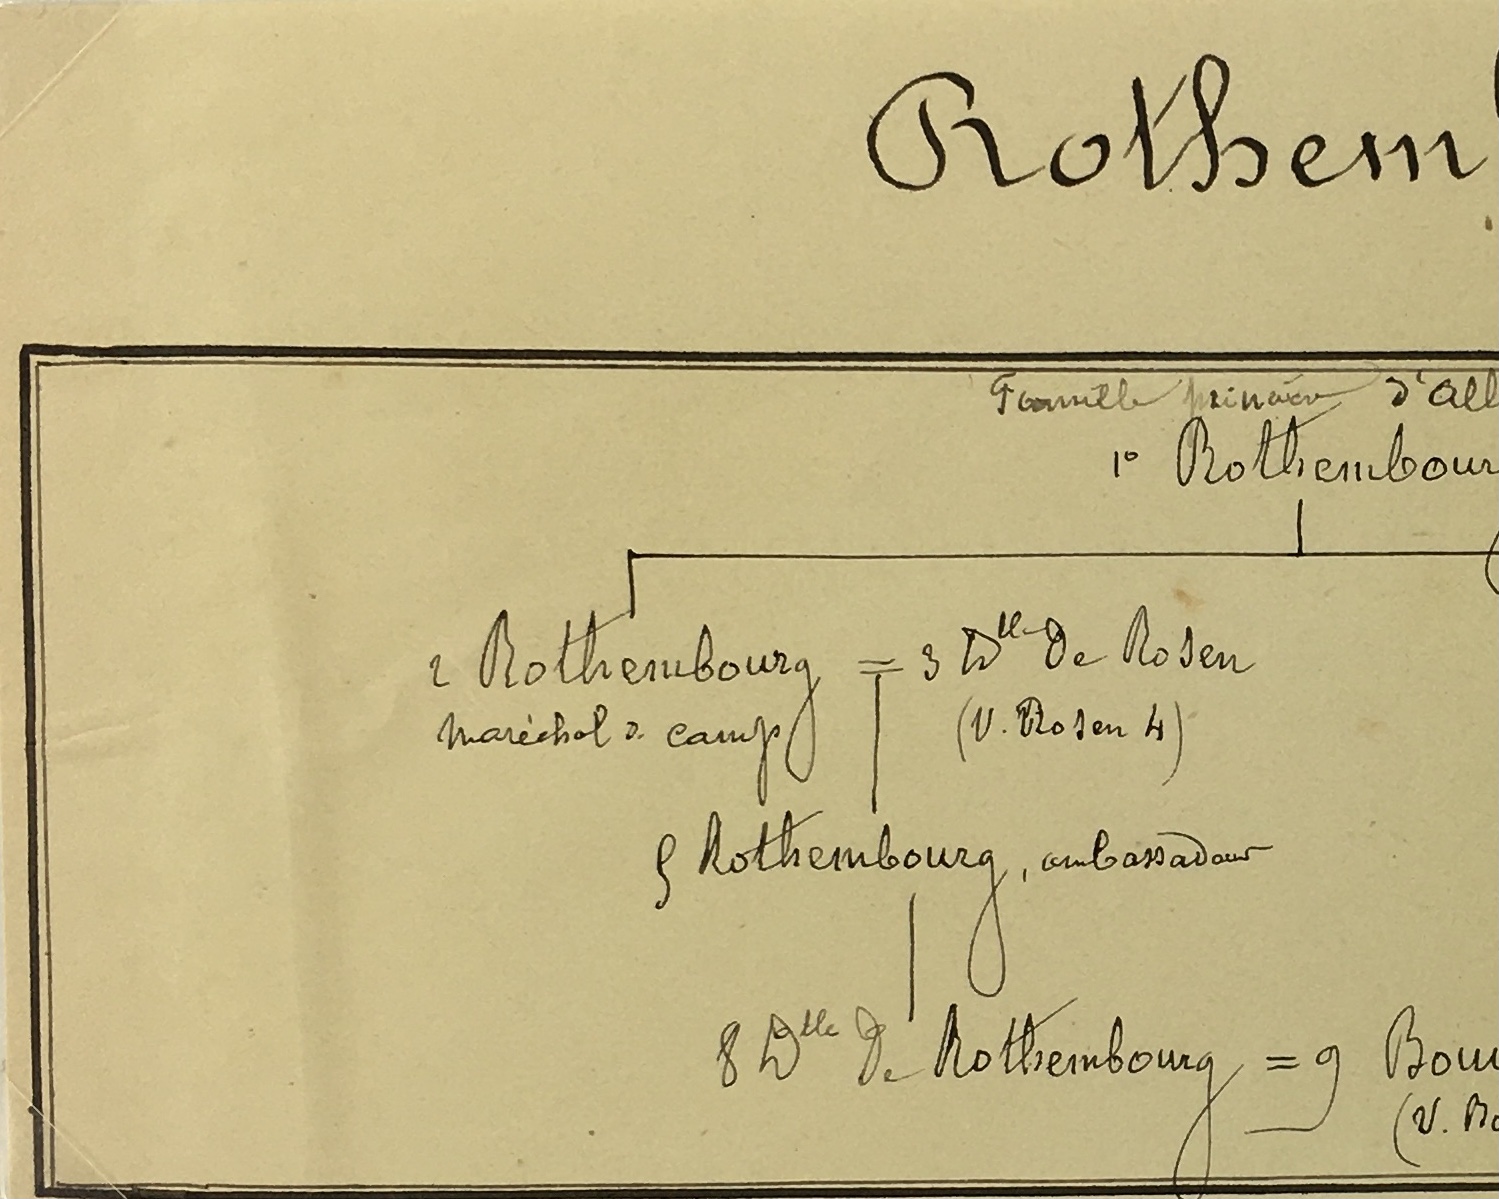 Rothem
Famille d'All
1° Rothembour
2 Rothembourg = 3 Dlle De Rosen
maréchal d. camp (V. Rosen 4)
5 Rothembourg, ambassadeur
8 Dlle De Rothembourg = 9 Bou
(V. Bo